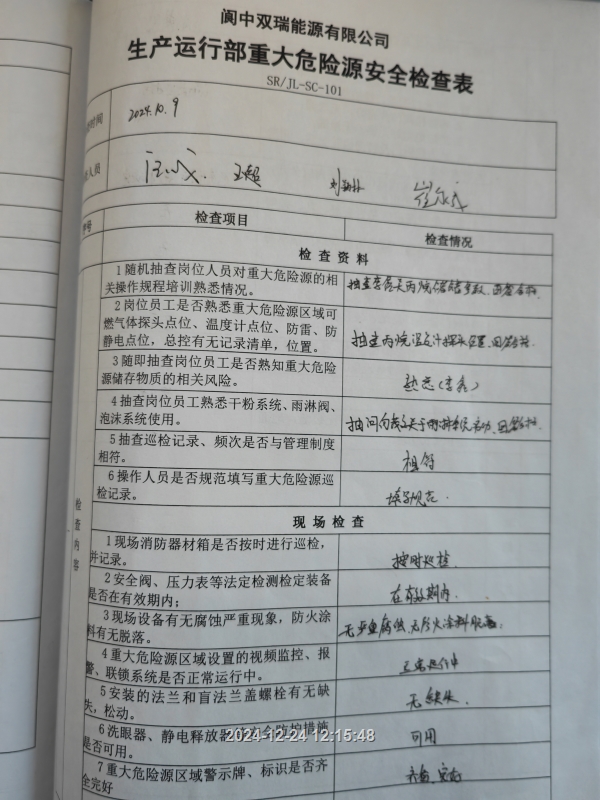 阆中双瑞能源有限公司
生产运行部重大危险源安全检查表
SR/JL-SC-101
时间
2024.10.9
人员
汪成 王超
号 检查项目 检查情况
检查资料
1 随机抽查岗位人员对重大危险源的相
关操作规程培训熟悉情况。
2 岗位员工是否熟悉重大危险源区域可
燃气体探头点位、温度计点位、防雷、防
静电点位，总控有无记录清单，位置。
3 随即抽查岗位员工是否熟知重大危险
源储存物质的相关风险。
熟悉
4 抽查岗位员工熟悉干粉系统、雨淋阀、
泡沫系统使用。
5 抽查巡检记录、频次是否与管理制度
相符。
相符
6 操作人员是否规范填写重大危险源巡
检记录。
填写规范.
检查内容
现场检查
1 现场消防器材箱是否按时进行巡检，
并记录。
按时巡检.
2 安全阀、压力表等法定检测检定装备
是否在有效期内；
在有效期内.
3 现场设备有无腐蚀严重现象，防火涂
料有无脱落。
无严重腐蚀，无防火涂料脱落
4 重大危险源区域设置的视频监控、报
警、联锁系统是否正常运行中。
正常运行中
5 安装的法兰和盲法兰盖螺栓有无缺
失，松动。
无缺失.
6 洗眼器、静电释放器等安全防护措施
是否可用。
可用
7 重大危险源区域警示牌、标识是否齐
全完好
齐全，完好
2024-12-24 12:15:48